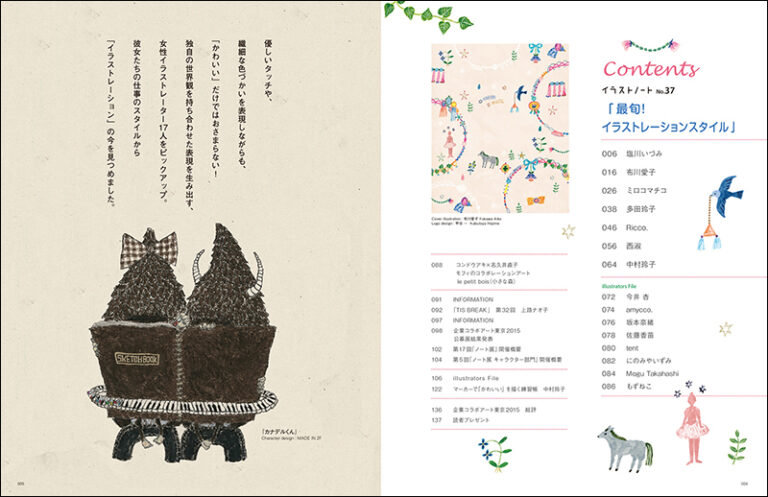 Contents
イラストノート No.37
「最旬!
イラストレーションスタイル」
006 塩川いづみ
016 布川愛子
026 ミロコマチコ
038 多田玲子
046 Ricco.
056 西淑
064 中村玲子
Illustrators File
072 今井 杏
074 amycco.
076 坂本奈緒
078 佐藤香苗
080 tent
082 にのみやいずみ
084 Megu Takahashi
086 もずねこ
004
Cover illustration : 布川愛子 Fukawa Aiko
068 コンドウアキ×志久井直子
モフィのコラボレーションアート
le petit bois (小さな森)
091 INFORMATION
092 「TIS BREAK」 第32回 上路ナオ子
097 INFORMATION
098 企業コラボアート東京2015
公募展結果発表
102 第17回「ノート展」開催概要
104 第5回「ノート展 キャラクター部門」開催概要
106 illustrators File
122 マーカーで「かわいい」を描く練習帳 中村玲子
136 企業コラボアート東京2015 総評
137 読者プレゼント
優しいタッチや、
繊細な色づかいを表現しながらも、
「かわいい」だけではおさまらない!
独自の世界観を持ち合わせた表現を生み出す、
女性イラストレーター17人をピックアップ。
彼女たちの仕事のスタイルから
「イラストレーション」の今を見つめました。
SKETCHBOOK
「カナデルくん」
Character design : MADE IN 2F
005